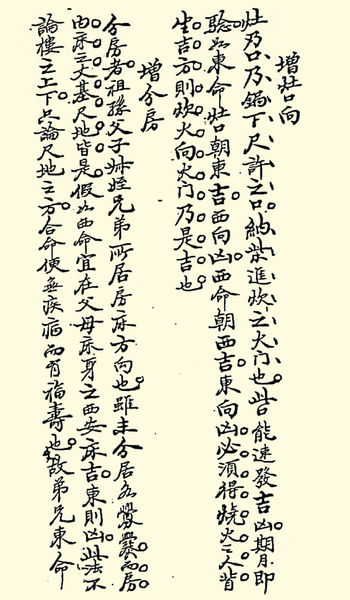 增灶口向
灶乃口乃鍋下尺許之口納柴進炊之火門也此能速發吉凶期月即
驗如東命灶口朝東吉西向凶西命朝西吉東向凶必須得燒火之人背
生吉方則炊火向火門乃是吉也
增分房
分房者祖孫父子姪兄弟所居房床方向也雖分居各爨而房
由床之丈基尺地皆是假如西命宜在父母床身之西安床吉東則凶此法不
論樓之上下只論尺地之方合命使無疾病而有福壽也故弟兄東命